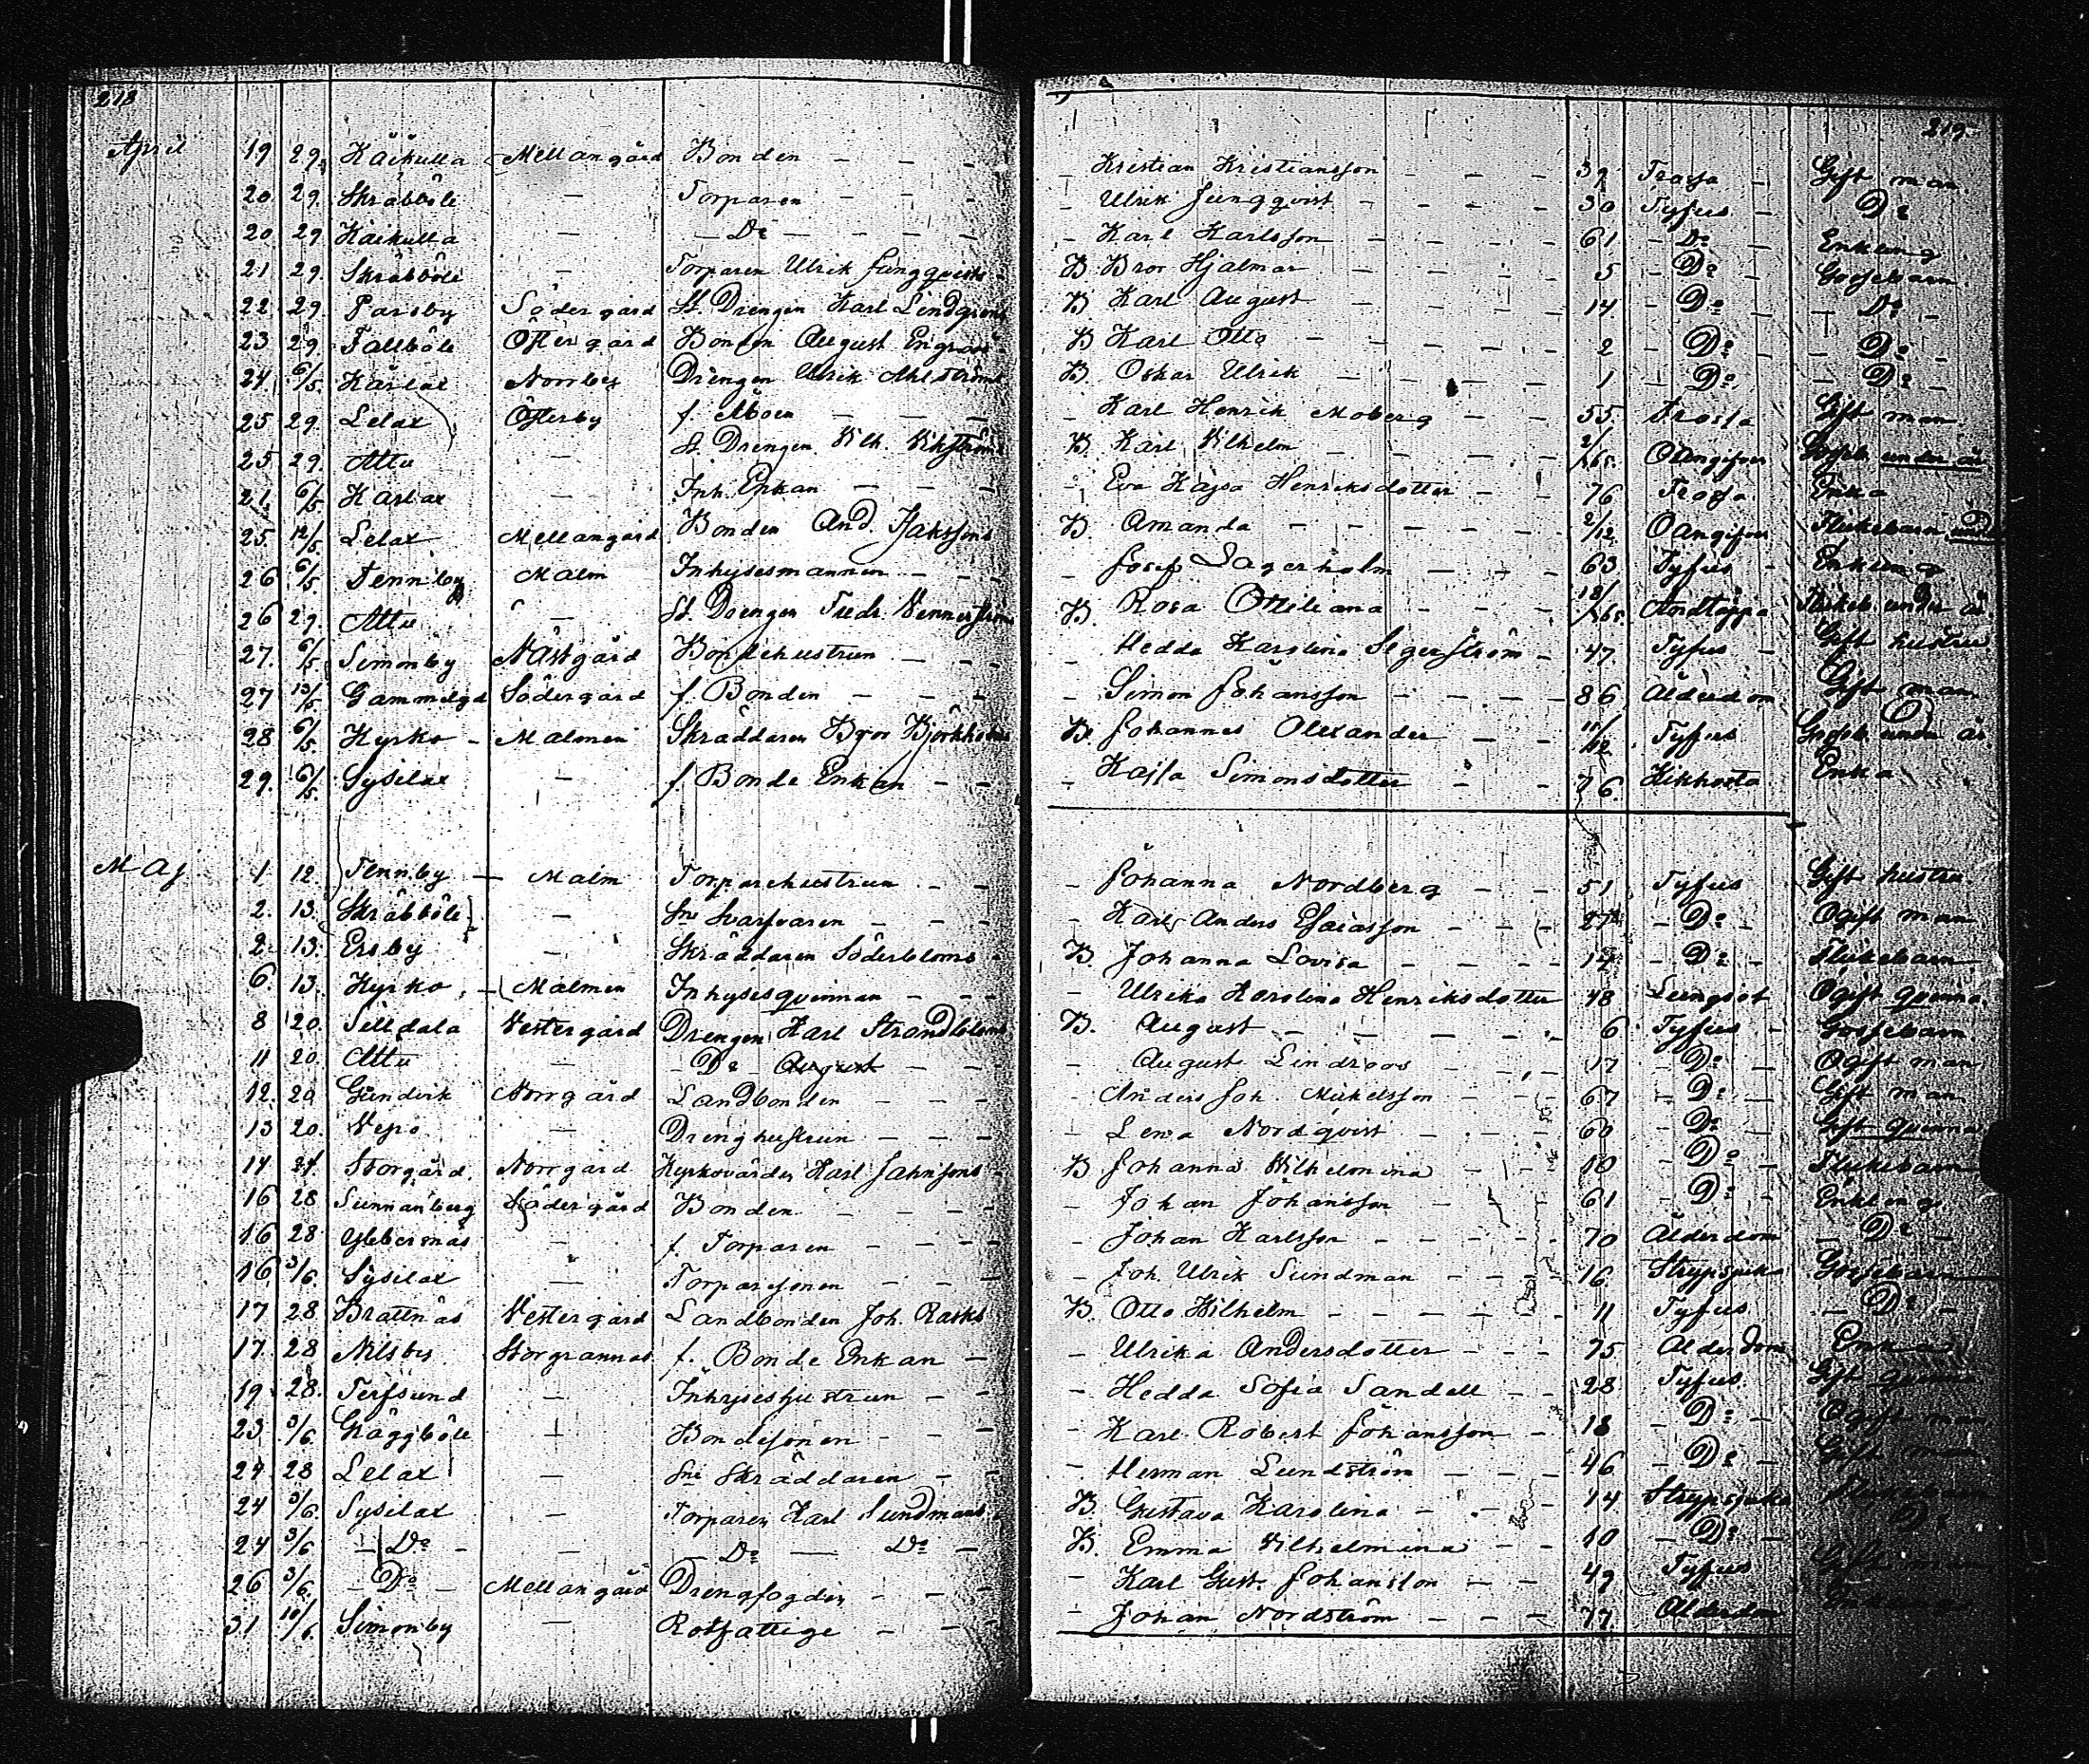 218
219
April 19 29 Kaikulla Mellangård Bonden — — — Kristian Kristiansson — 39 Trosa — Gift man
20 29 Skräbböle — Torparen — — — Ulrik Ljungqvist — — 30 Tyfus — Do
20 29 Kaikulla — — Do — — — Karl Karlsson — — 61 — Do — Enkling
21 29. Skräbböle — Torparen Ulrik Ljungqvists B Bror Hjalmar — — 5 — Do — Gossebarn
22 29. Parsby Södergård St. Drengen Karl Lindgrens B Karl August — — 14 — Do — — Do —
23 29 Fallböle Östergård Bonden August B Karl Otto — — 2 — Do — — Do —
24 6/5. Karlax Norrby Drengen Ulrik Ahlströms B Oskar Ulrik — — 1 — Do — — Do —
25 29. Lelax Österby f. Åboen — — — Karl Henrik Moberg — — 55. Gift man
25 29. Attu — St. Drengen Vilh. Vikströms B Karl Vilhelm — — under år
6/5 Karlax — Inh. Enkan — — — Eva Kajsa Henriksdotter — — 76 Enka
25 12/5 Lelax Mellangård Bonden And. Isakssons B Amanda — — 2/12 Oangifven Flickebarn
26 6/5 Tennby Malm Inhysesmannen — — — Josef Lagerholm — — 63 Tyfus — Enkling
26 29. Attu — St. Drengen Fredr. Vennerströms B. Rosa Ottiliana — — Andtäppa Flickeb. under år
27. 6/5 Simonby Nästgård Bondehustrun — — — Hedda Karolina Segerström — 47. Tyfus — Gift hustru
27 13/5 Gammelgd Södergård f. Bonden — — — Simon Johansson — — 86 Ålderdom Gift man
28 6/5. Kyrko — Malmen Skräddaren Björkholms B. Johannes Alexander — — 11/12. Tyfus Gosseb. under år
29. 6/5. Sysilax — f. Bonde Enkan — — — Kajsa Simonsdotter — — 76. Kikhosta Enka
Maj 1 12. Tennby — Malm Torparehustrun — — — Johanna Nordberg — — 51 Tyfus Gift hustru
2. 13. Skräbböle — Sne Svarfvaren — — — Karl Anders Esaiasson — — 27 — Do — Ogift man
2 13. Ersby — Skräddaren Söderbloms B. Johanna Lovisa — — 12 — Do — Flickebarn
6. 13. Kyrko — Malmen Inhysesqvinnan — — — Ulrika Karolina Henriksdotter 48 Lungsot Ogift qvinna
8 20. Silldala Vestergård Drengen Karl Strandbloms B. August — — 6 Tyfus — Gossebarn
11 20. Attu — — Do — August — — — August Lindroos — — 17 — Do — Ogift man
12. 20 Gunderk Norrgård Landbonden — — — Anders Joh. Mickelsson — — 67 — Do — Gift man
13 20. Vepo — Drenghustrun — — — Lena Nordqvist — — 60 — Do — Gift qvinna
14 24. Storgård Norrgård Kyrkovärden Karl Jahnssons B Johanna Vilhelmina — — 10 — Do — Flickebarn
16 28 Sunnanberg Södergård Bonden — — — Johan Johansson — — 61 — Do — Enkling
16 28. Ybbersnäs — f. Torparen — — — Johan Karlsson — — 70 Ålderdom — Do —
16. 3/6. Sysilax — Torparesonen — — — Joh. Ulrik Sundman — — 16. Strypsjuka Gossebarn
17 28 Brattnäs Vestergård Landbonden Joh. Rasks B. Otto Vilhelm — — 11 Tyfus — Do —
17. 28 Nilsby Storgrannas f. Bonde Enkan — — Ulrika Andersdotter — — 75 Ålderdom Enka
19. 28. Terfsund — Inhyseshustrun — — — Hedda Sofia Sandell — — 28 Tyfus Gift qvinna
23 3/6. Gräggböle — Bondesonen — — — Karl Robert Johansson — 18 — Do — Ogift man
24. 28 Lelax — Sne Skräddaren — — — Herman Lundström — — 46 — Do — Gift man
24 3/6. Sysilax — Torparen Karl Sundmans B. Gustava Karolina — — 14 Strypsjuka Do
24 3/6 — Do — — — Do — Do — B. Emma Vilhelmina — — 10 — Do —
26 3/6. — Do — Mellangård Drengfogden — — — Karl Gust. Johansson — — 49 Tyfus Gift man
31 10/6. Simonby — Rotfattige — — — Johan Nordström — — 77. Ålderdom